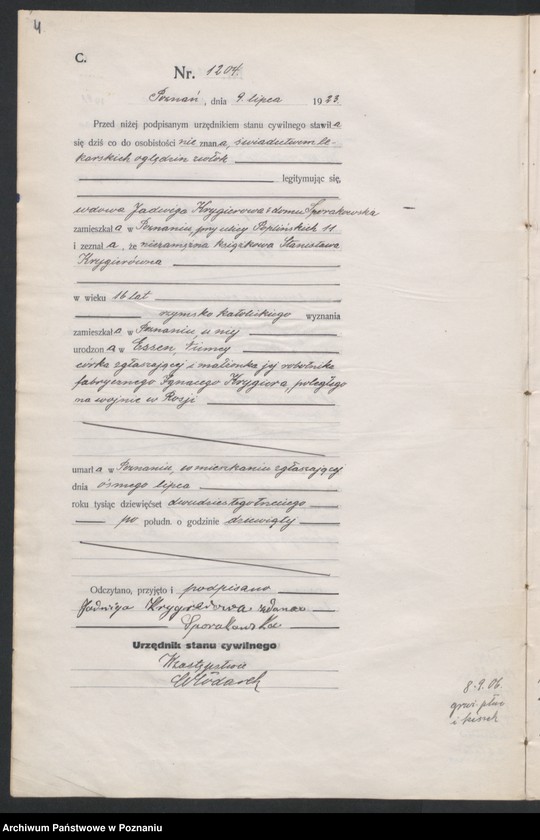 4
C.
Nr. 1204.
Poznań, dnia 9 lipca 1923.
Przed niżej podpisanym urzędnikiem stanu cywilnego stawiła
się dziś co do osobistości nie znana, świadectwem le-
karskich oględzin zwłok
legitymując się,
wdowa Jadwiga Krygierowa z domu Sporakowska
zamieszkała w Poznaniu, przy ulicy Poplińskich 11
i zeznała, że niezamężna książkowa Stanisława
Krygierówna
w wieku 16 lat
rzymsko katolickiego wyznania
zamieszkała w Poznaniu u niej
urodzona w Essen, Niemcy
córka zgłaszającej i małżonka jej robotnika
fabrycznego Ignacego Krygiera, poległego
na wojnie w Rosji
umarła w Poznaniu, w mieszkaniu zgłaszającej
dnia ósmego lipca
roku tysiąc dziewięćset dwudziestego trzeciego
po połudn. o godzinie dziewiątej
Odczytano, przyjęto i podpisano
Jadwiga Krygierowa z domu
Sporakowska
Urzędnik stanu cywilnego
W zastępstwie
Włódarek
8.9.06.
gruź. płuc
Archiwum Państwowe w Poznaniu